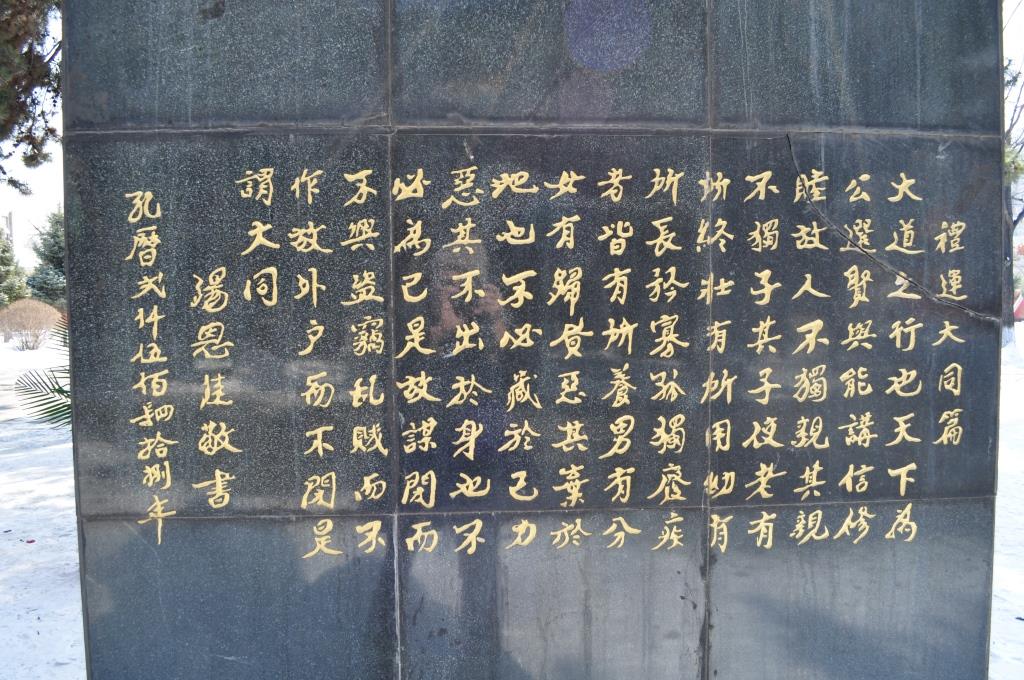 禮運大同篇
大道之行也天下為
公選賢與能講信修
睦故人不獨親其親
不獨子其子使老有
所終壯有所用幼有
所長矜寡孤獨廢疾
者皆有所養男有分
女有歸貨惡其棄於
地也不必藏於己力
惡其不出於身也不
必為己是故謀閉而
不興盜竊乱賊而不
作故外户而不閉是
謂大同
湯恩佳敬書
孔曆弍仟伍佰肆拾捌年